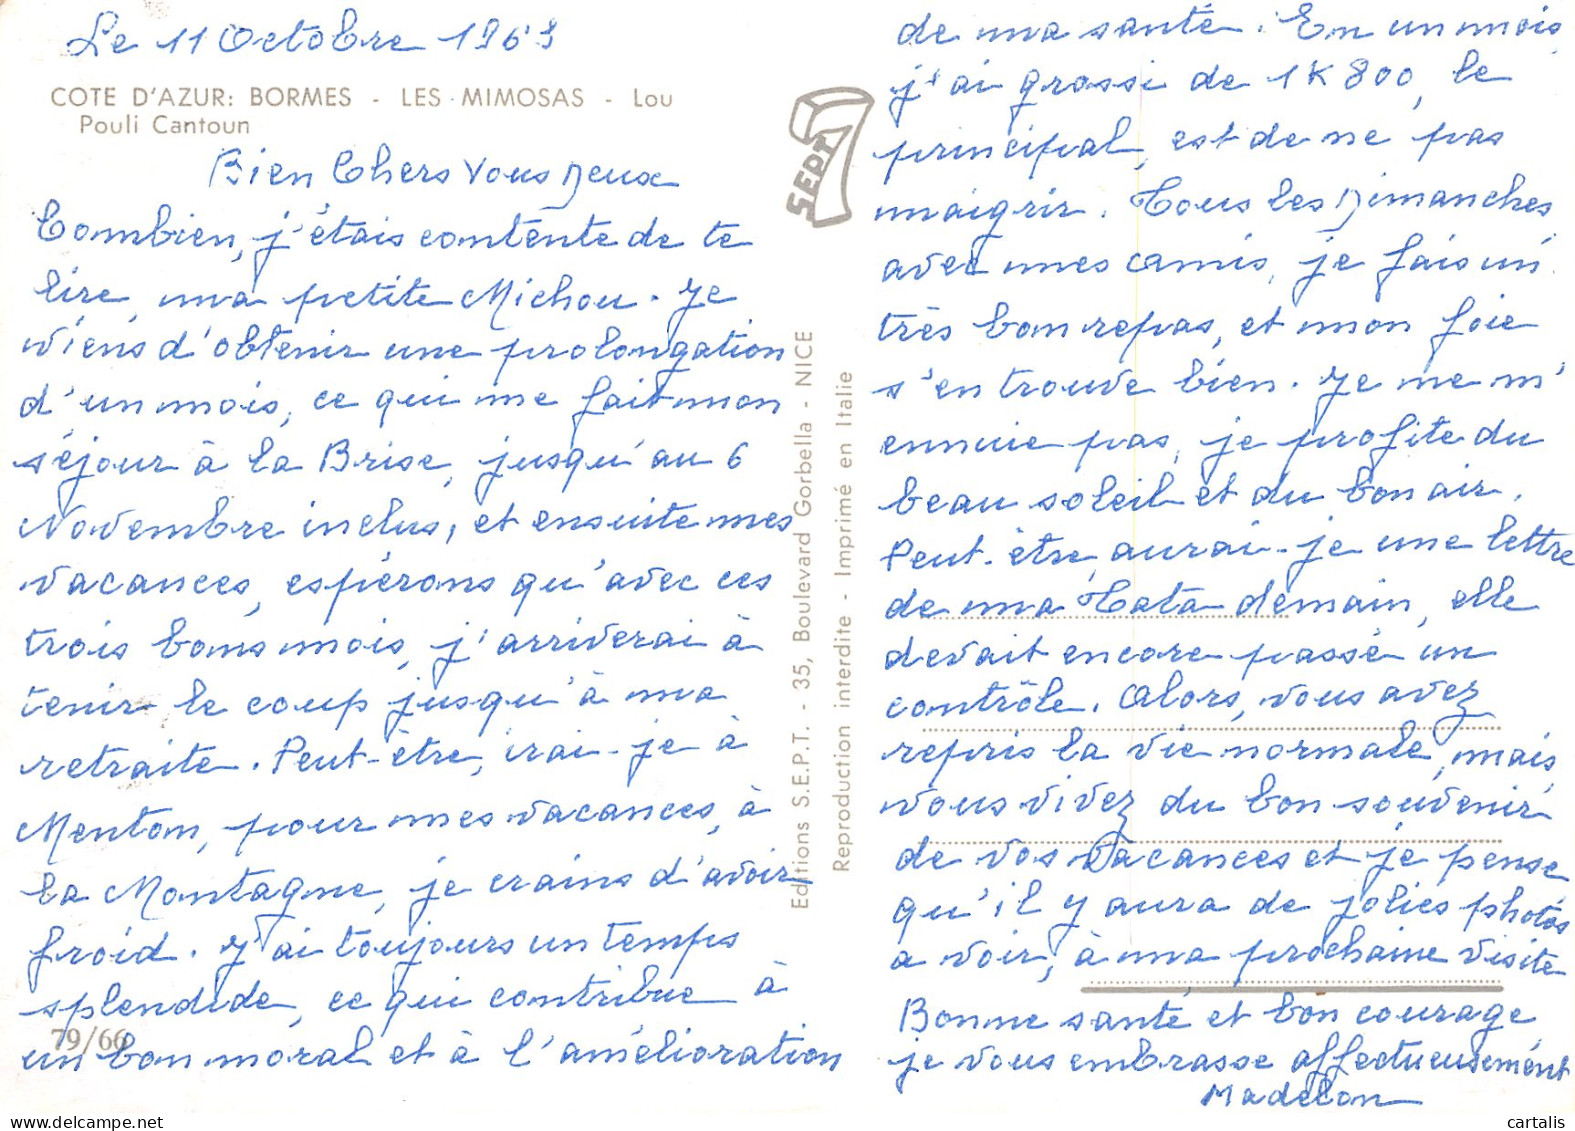 Le 11 Octobre 1969
COTE D'AZUR: BORMES - LES MIMOSAS - Lou
Pouli Cantoun
Bien Chers Vous Deux
Combien, j'étais contente de te
lire, ma petite Michou. Je
viens d'obtenir une prolongation
d'un mois, ce qui me fait mon
séjour à la Brise, jusqu'au 6
Novembre inclus, et ensuite mes
vacances, espérons qu'avec ces
trois bons mois, j'arriverai à
tenir le coup jusqu'à ma
retraite. Peut-être, irai-je à
Menton, pour mes vacances, à
la Montagne, je crains d'avoir
froid. J'ai toujours un temps
splendide, ce qui contribue à
79/66
un bon moral et à l'amélioration
SEPT
7
Editions S.E.P.T. - 35, Boulevard Gorbella - NICE
Reproduction interdite - Imprimé en Italie
de ma santé. En un mois
j'ai grossi de 1K800, le
principal, est de ne pas
maigrir. Tous les Dimanches
avec mes amis, je fais un
très bon repas, et mon foie
s'en trouve bien. Je ne m'
ennuie pas, je profite du
beau soleil et du bon air.
Peut-être, aurai-je une lettre
de ma Tata demain, elle
devait encore passé un
contrôle. Alors, vous avez
repris la vie normale, mais
vous vivez du bon souvenir
de vos vacances et je pense
qu'il y aura de jolies photos
a voir, à ma prochaine visite
Bonne santé et bon courage
je vous embrasse affectueusement
Madelon
cartalis